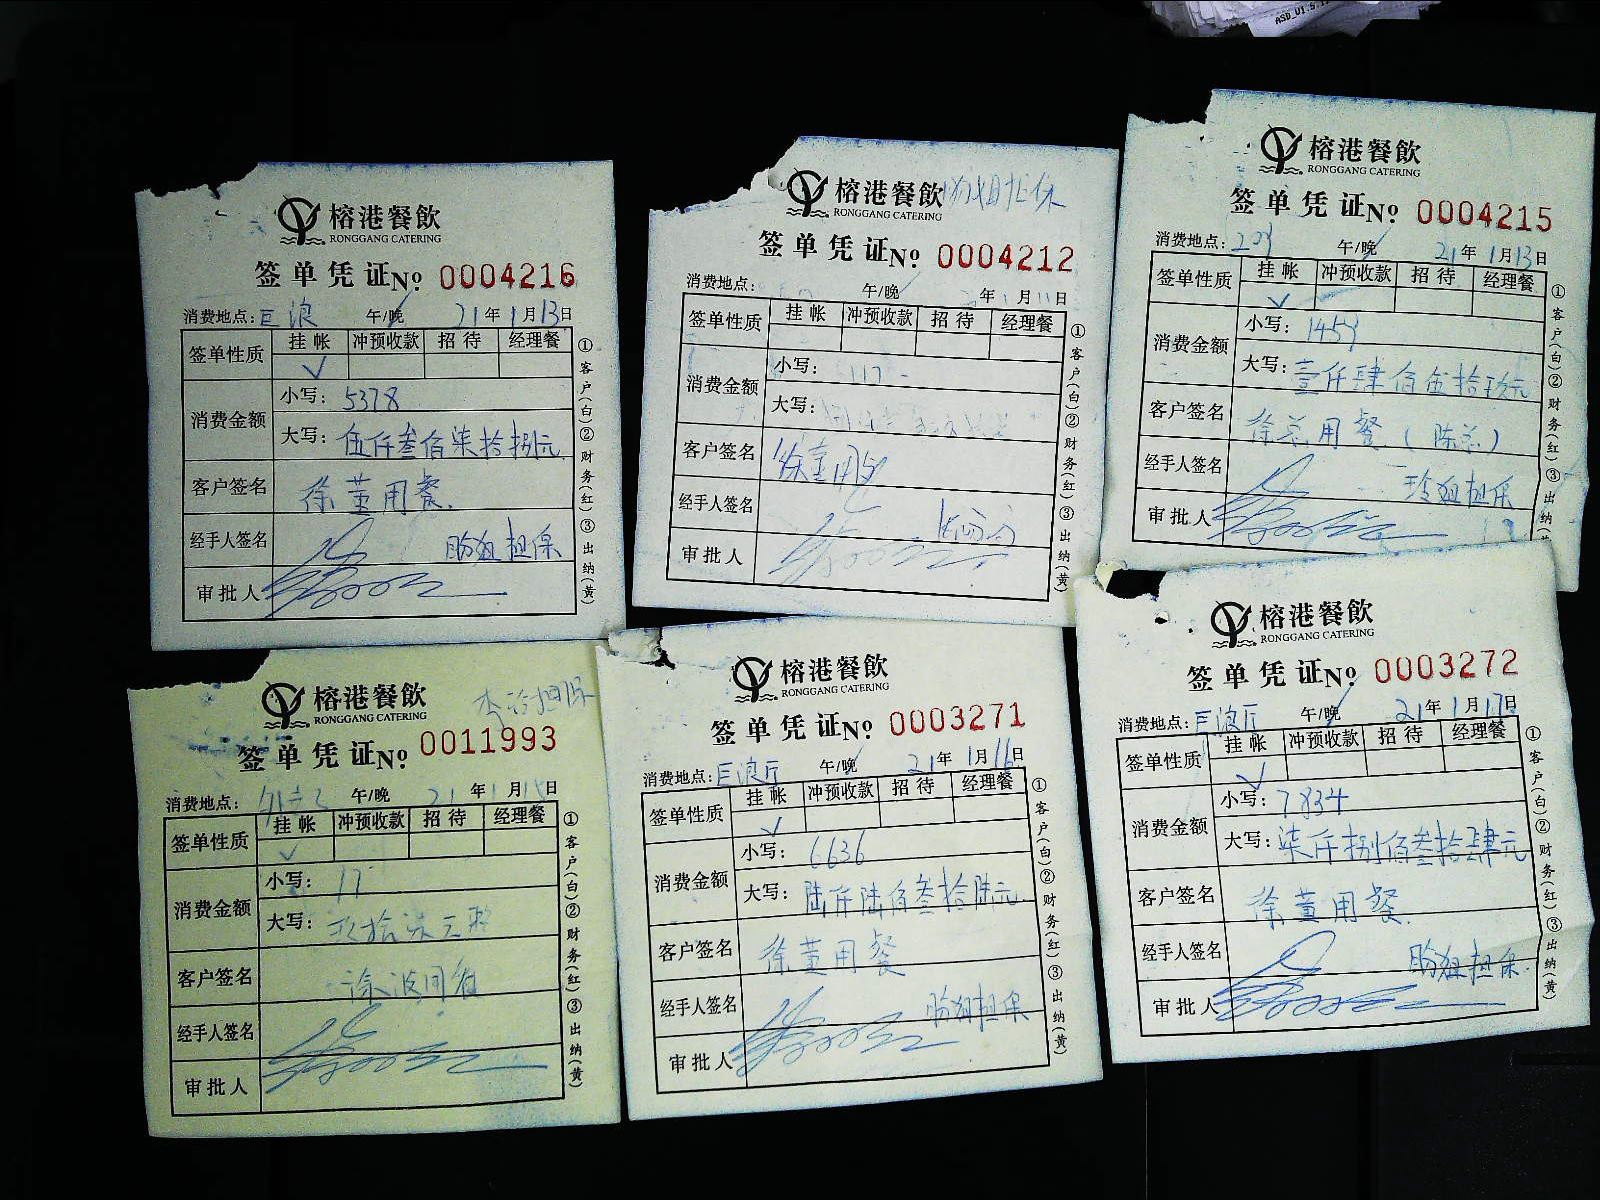 ASD_V1.5.1
榕港餐飲
RONGGANG CATERING
签单凭证 № 0004216
消费地点：巨浪 午/晚 21年1月13日
签单性质 挂帐 冲预收款 招待 经理餐
✓
消费金额 小写：5378
大写：伍仟叁佰柒拾捌元
客户签名 徐董用餐.
经手人签名 胸姐担保
审批人
①客户(白)②财务(红)③出纳(黄)
榕港餐飲
RONGGANG CATERING
担保
签单凭证 № 0004212
消费地点： 午/晚 年1月11日
签单性质 挂帐 冲预收款 招待 经理餐
消费金额 小写：117-
大写：
客户签名 徐董用
经手人签名
审批人
①客户(白)②财务(红)③出纳(黄)
榕港餐飲
RONGGANG CATERING
签单凭证 № 0004215
消费地点：203 午/晚 21年1月13日
签单性质 挂帐 冲预收款 招待 经理餐
✓
消费金额 小写：1459
大写：壹仟肆佰伍拾玖元
客户签名 徐总用餐（陈总）
经手人签名 玲姐担保
审批人
①客户(白)②财务(红)③出纳(黄)
榕港餐飲
RONGGANG CATERING
担保
签单凭证 № 0011993
消费地点： 午/晚 21年1月15日
签单性质 挂帐 冲预收款 招待 经理餐
✓
消费金额 小写：
大写：拾柒元整
客户签名
经手人签名
审批人
①客户(白)②财务(红)③出纳(黄)
榕港餐飲
RONGGANG CATERING
签单凭证 № 0003271
消费地点：巨浪厅 午/晚 21年1月16日
签单性质 挂帐 冲预收款 招待 经理餐
✓
消费金额 小写：6636
大写：陆仟陆佰叁拾陆元
客户签名 徐董用餐
经手人签名 胸姐担保
审批人
①客户(白)②财务(红)③出纳(黄)
榕港餐飲
RONGGANG CATERING
签单凭证 № 0003272
消费地点：巨浪厅 午/晚 21年1月17日
签单性质 挂帐 冲预收款 招待 经理餐
✓
消费金额 小写：7834
大写：柒仟捌佰叁拾肆元
客户签名 徐董用餐.
经手人签名 胸姐担保.
审批人
①客户(白)②财务(红)③出纳(黄)